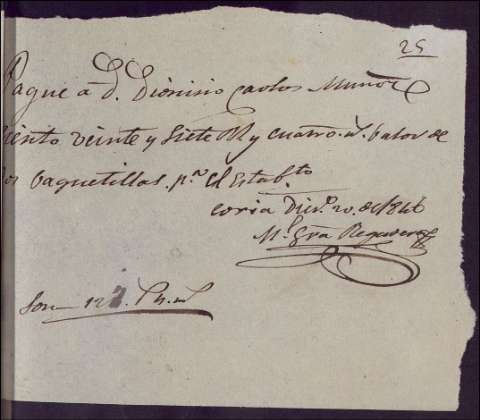 25
Pague a D. Dionisio Carlos Muñoz
ciento veinte y siete R.s y cuatro m.s valor de
dos baquetillas p.ª el Establ.to
Coria Dic.e 20 de 1846
M.l Gra Reguero
Son 127 rs. 4 ms